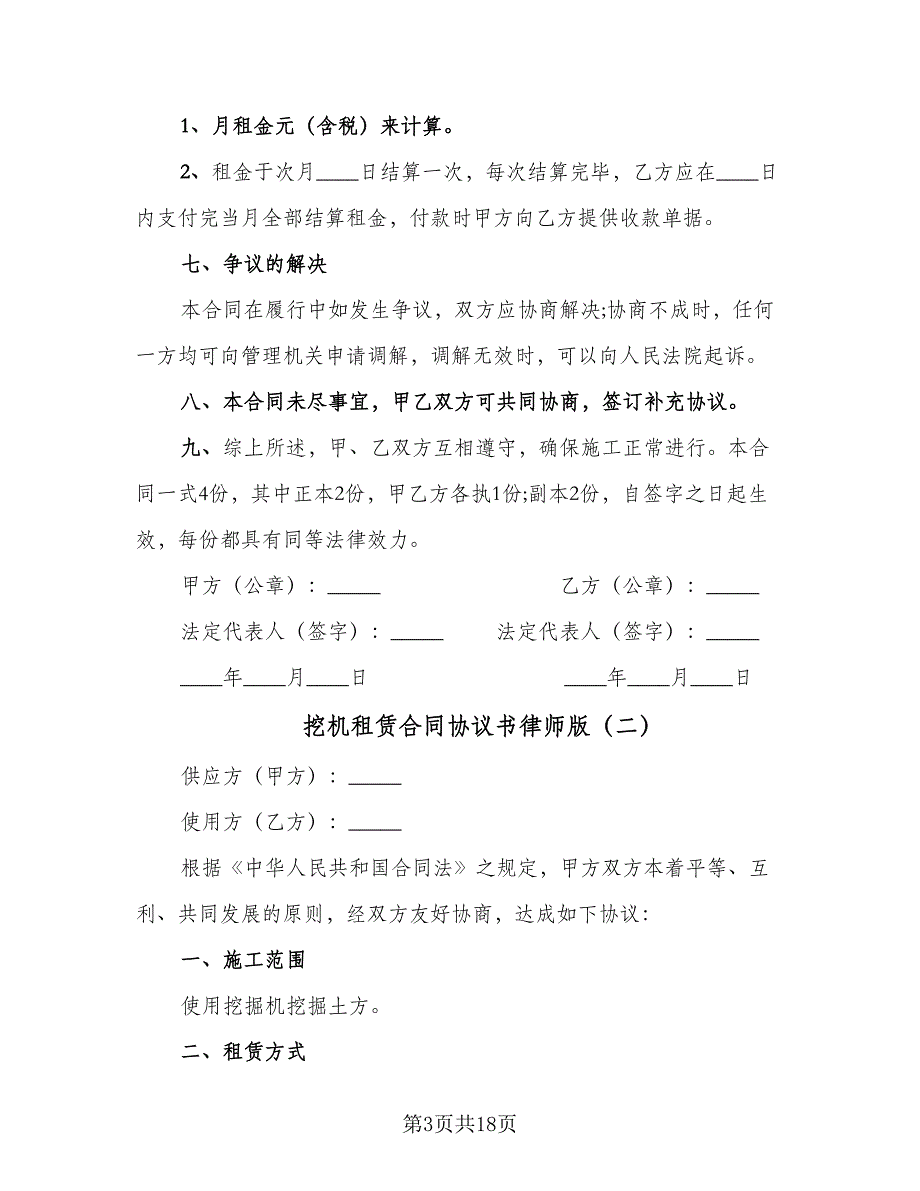 1、月租金元（含税）来计算。
2、租金于次月____日结算一次，每次结算完毕，乙方应在____日
内支付完当月全部结算租金，付款时甲方向乙方提供收款单据。
七、争议的解决
本合同在履行中如发生争议，双方应协商解决;协商不成时，任何
一方均可向管理机关申请调解，调解无效时，可以向人民法院起诉。
八、本合同未尽事宜，甲乙双方可共同协商，签订补充协议。
九、综上所述，甲、乙双方互相遵守，确保施工正常进行。本合
同一式4份，其中正本2份，甲乙方各执1份;副本2份，自签字之日起生
效，每份都具有同等法律效力。
甲方（公章）：_____ 乙方（公章）：_____
法定代表人（签字）：_____ 法定代表人（签字）：_____
____年____月____日 ____年____月____日
挖机租赁合同协议书律师版（二）
供应方（甲方）：_____
使用方（乙方）：_____
根据《中华人民共和国合同法》之规定，甲方双方本着平等、互
利、共同发展的原则，经双方友好协商，达成如下协议：
一、施工范围
使用挖掘机挖掘土方。
二、租赁方式
第3页共18页